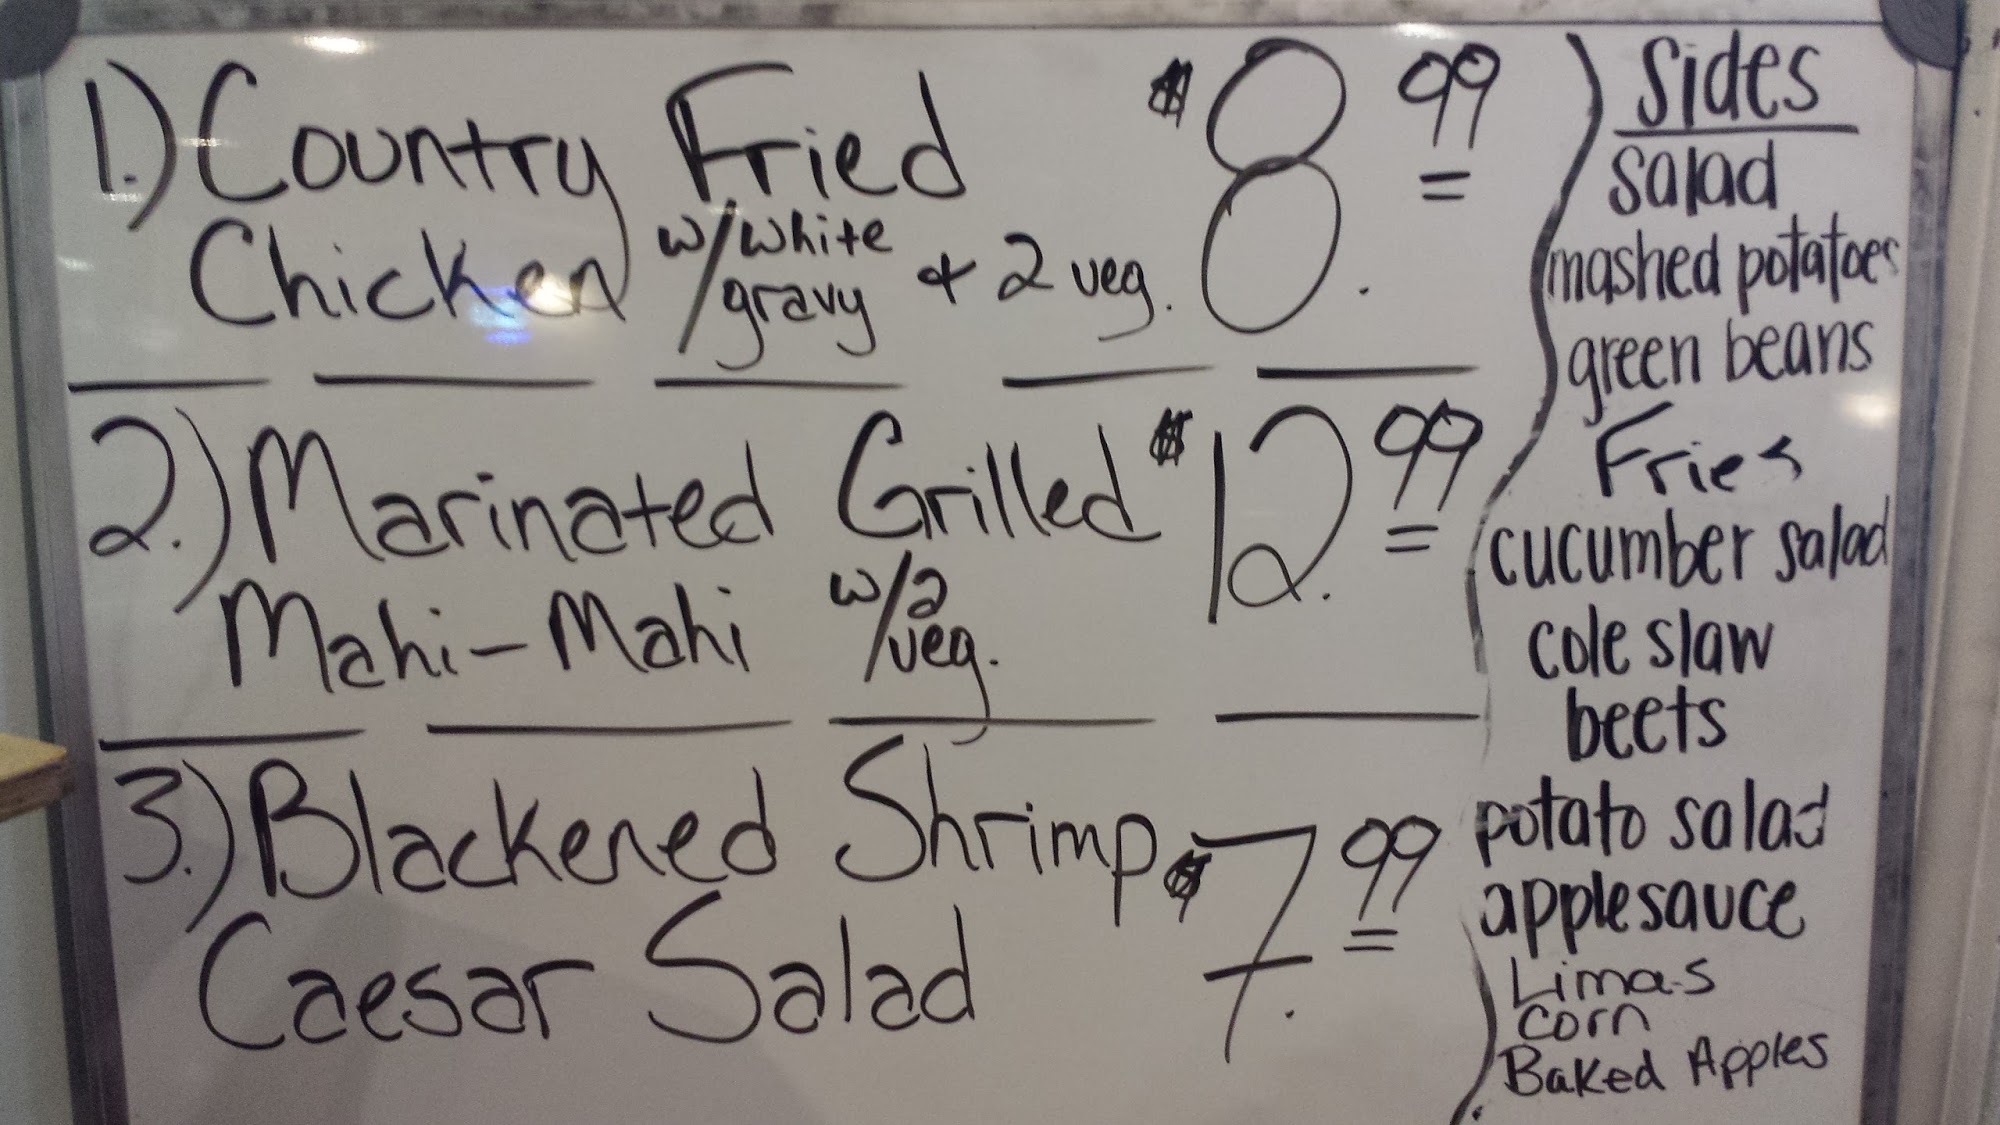 1.) Country Fried $8.99
Chicken w/white gravy + 2 veg.
2.) Marinated Grilled $12.99
Mahi-Mahi w/2 veg.
3.) Blackened Shrimp $7.99
Caesar Salad
Sides
salad
mashed potatoes
green beans
Fries
cucumber salad
cole slaw
beets
potato salad
applesauce
Limas
corn
Baked Apples